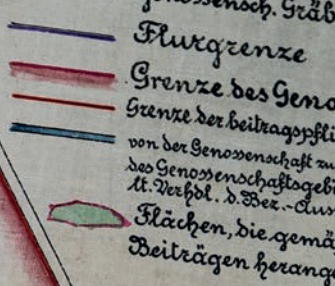 genossensch. Gräb
Flurgrenze
Grenze des Geno
Grenze der beitragspfli
von der Genossenschaft zu
des Genossenschaftsgebi
lt. Verhdl. d. Bez.-Aus
Flächen, die gemä
Beiträgen herange